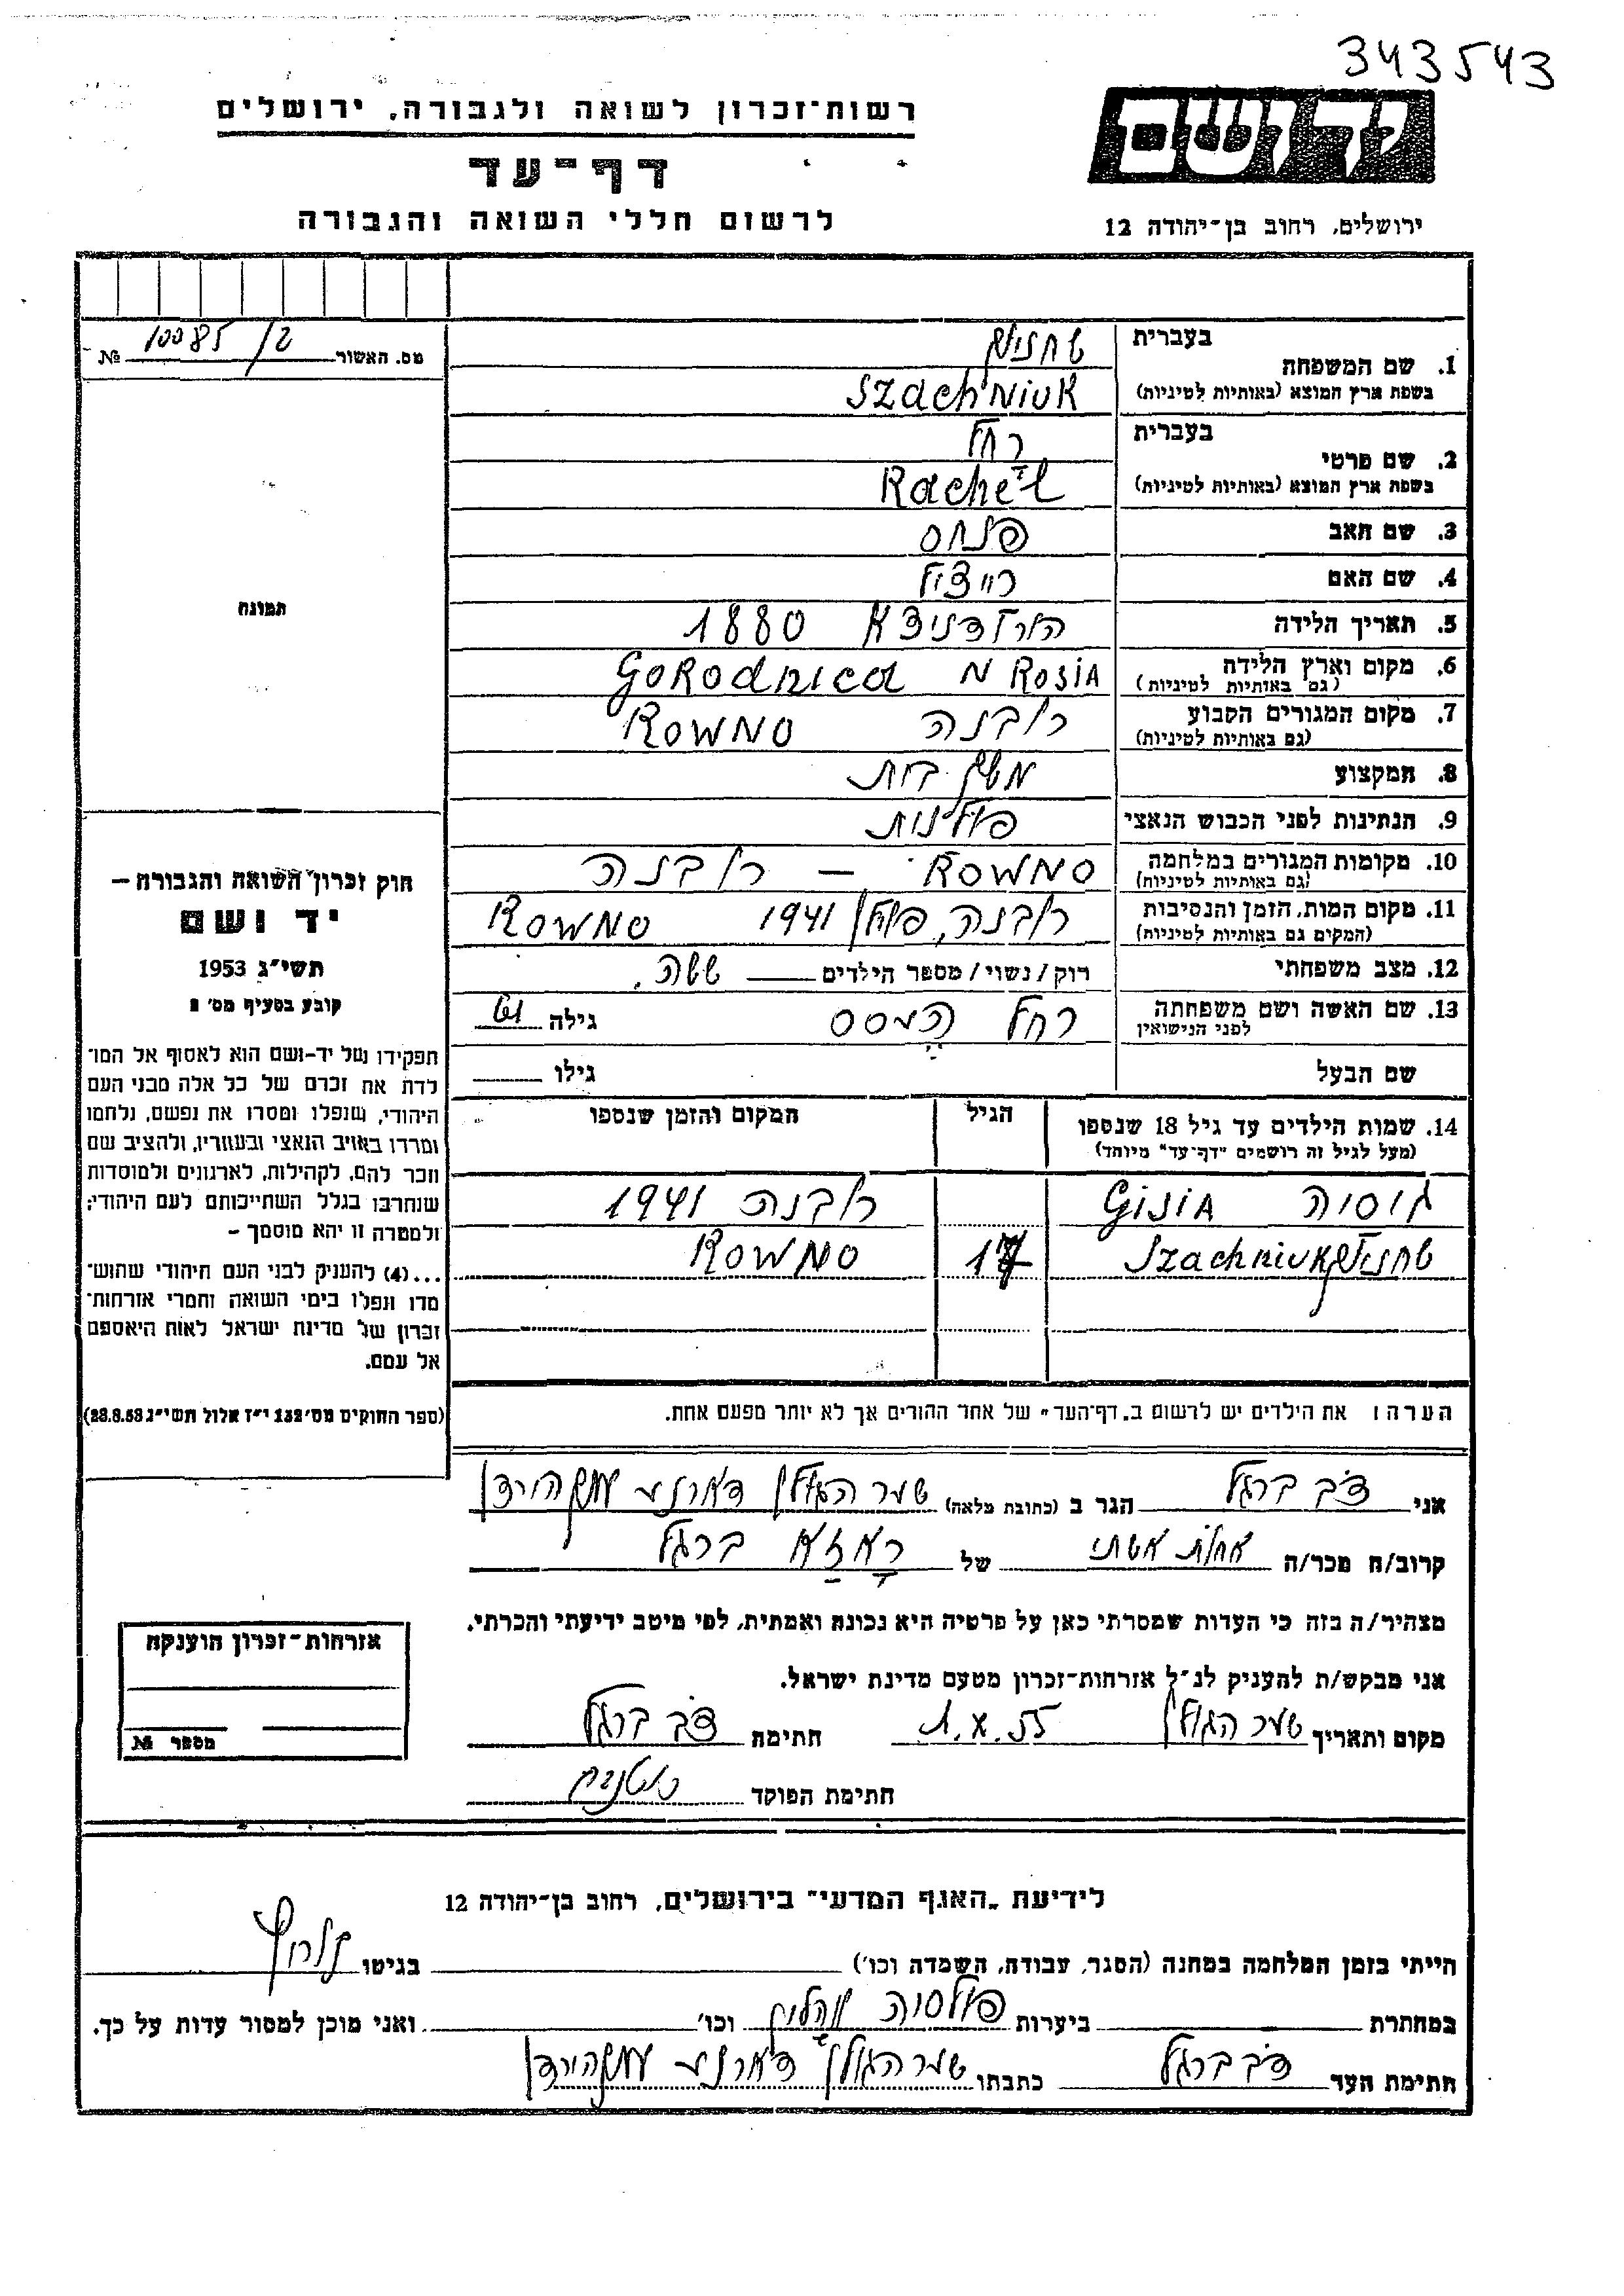 343543
רשות־זכרון לשואה ולגבורה, ירושלים
דף־עד
לרשום חללי השואה והגבורה
יד ושם
ירושלים, רחוב בן־יהודה 12
מס. האשור 10085/2 №
תמונה
חוק זכרון השואה והגבורה –
יד ושם
תשי״ג 1953
קובע בסעיף מס׳ 2
תפקידו של יד-ושם הוא לאסוף אל המו־
לדת את זכרם של כל אלה מבני העם
היהודי, שנפלו ומסרו את נפשם, נלחמו
ומרדו באויב הנאצי ובעוזריו, ולהציב שם
וזכר להם, לקהילות, לארגונים ולמוסדות
שנחרבו בגלל השתייכותם לעם היהודי;
ולמטרה זו יהא מוסמך –
...(4) להעניק לבני העם היהודי שהוש־
מדו ונפלו בימי השואה והמרי אזרחות־
זכרון של מדינת ישראל לאות היאספם
אל עמם.
(ספר החוקים מס׳ 132 י״ז אלול תשי״ג 28.8.53)
1. שם המשפחה בעברית שחניוק
בשפת ארץ המוצא (באותיות לטיניות) Szachniuk
2. שם פרטי בעברית רחל
בשפת ארץ המוצא (באותיות לטיניות) Rachel
3. שם האב פנחס
4. שם האם רייצול
5. תאריך הלידה הורודניצא 1880
6. מקום וארץ הלידה (גם באותיות לטיניות) Gorodnica N Rosia
7. מקום המגורים הקבוע (גם באותיות לטיניות) רובנה Rowno
8. המקצוע משק בית
9. הנתינות לפני הכבוש הנאצי פולנית
10. מקומות המגורים במלחמה (גם באותיות לטיניות) Rowno – רובנה
11. מקום המות, הזמן והנסיבות (המקום גם באותיות לטיניות) רובנה, פולין 1941 Rowno
12. מצב משפחתי רוק/נשוי/מספר הילדים ששה.
13. שם האשה ושם משפחתה לפני הנישואין רחל גילה 61
שם הבעל גילו
14. שמות הילדים עד גיל 18 שנספו הגיל המקום והזמן שנספו
(מעל לגיל זה רושמים ״דף־עד״ מיוחד)
גיסיה Gisia רובנה 1941
שחניוק Szachniuk 17 Rowno
הערה: את הילדים יש לרשום ב„דף־העד״ של אחד ההורים אך לא יותר מפעם אחת.
אני דב ברגל הגר ב (כתובת מלאה) שער הגולן ד.נ. עמק הירדן
קרוב/ה מכר/ה של ברגל
מצהיר/ה בזה כי העדות שמסרתי כאן על פרטיה היא נכונה ואמתית, לפי מיטב ידיעתי והכרתי.
אני מבקש/ת להעניק לנ״ל אזרחות־זכרון מטעם מדינת ישראל.
מקום ותאריך שער הגולן 1.X.55 חתימה דב ברגל
חתימת הפוקד
אזרחות־זכרון הוענקה
מספר №
לידיעת „האגף המדעי״ בירושלים, רחוב בן־יהודה 12
הייתי בזמן המלחמה במחנה (הסגר, עבודה, השמדה וכו׳) בגיטו
במחתרת ביערות פולסיה ווהלין וכו׳ ואני מוכן למסור עדות על כך.
חתימת העד דב ברגל כתבתו שער הגולן ד.נ. עמק הירדן